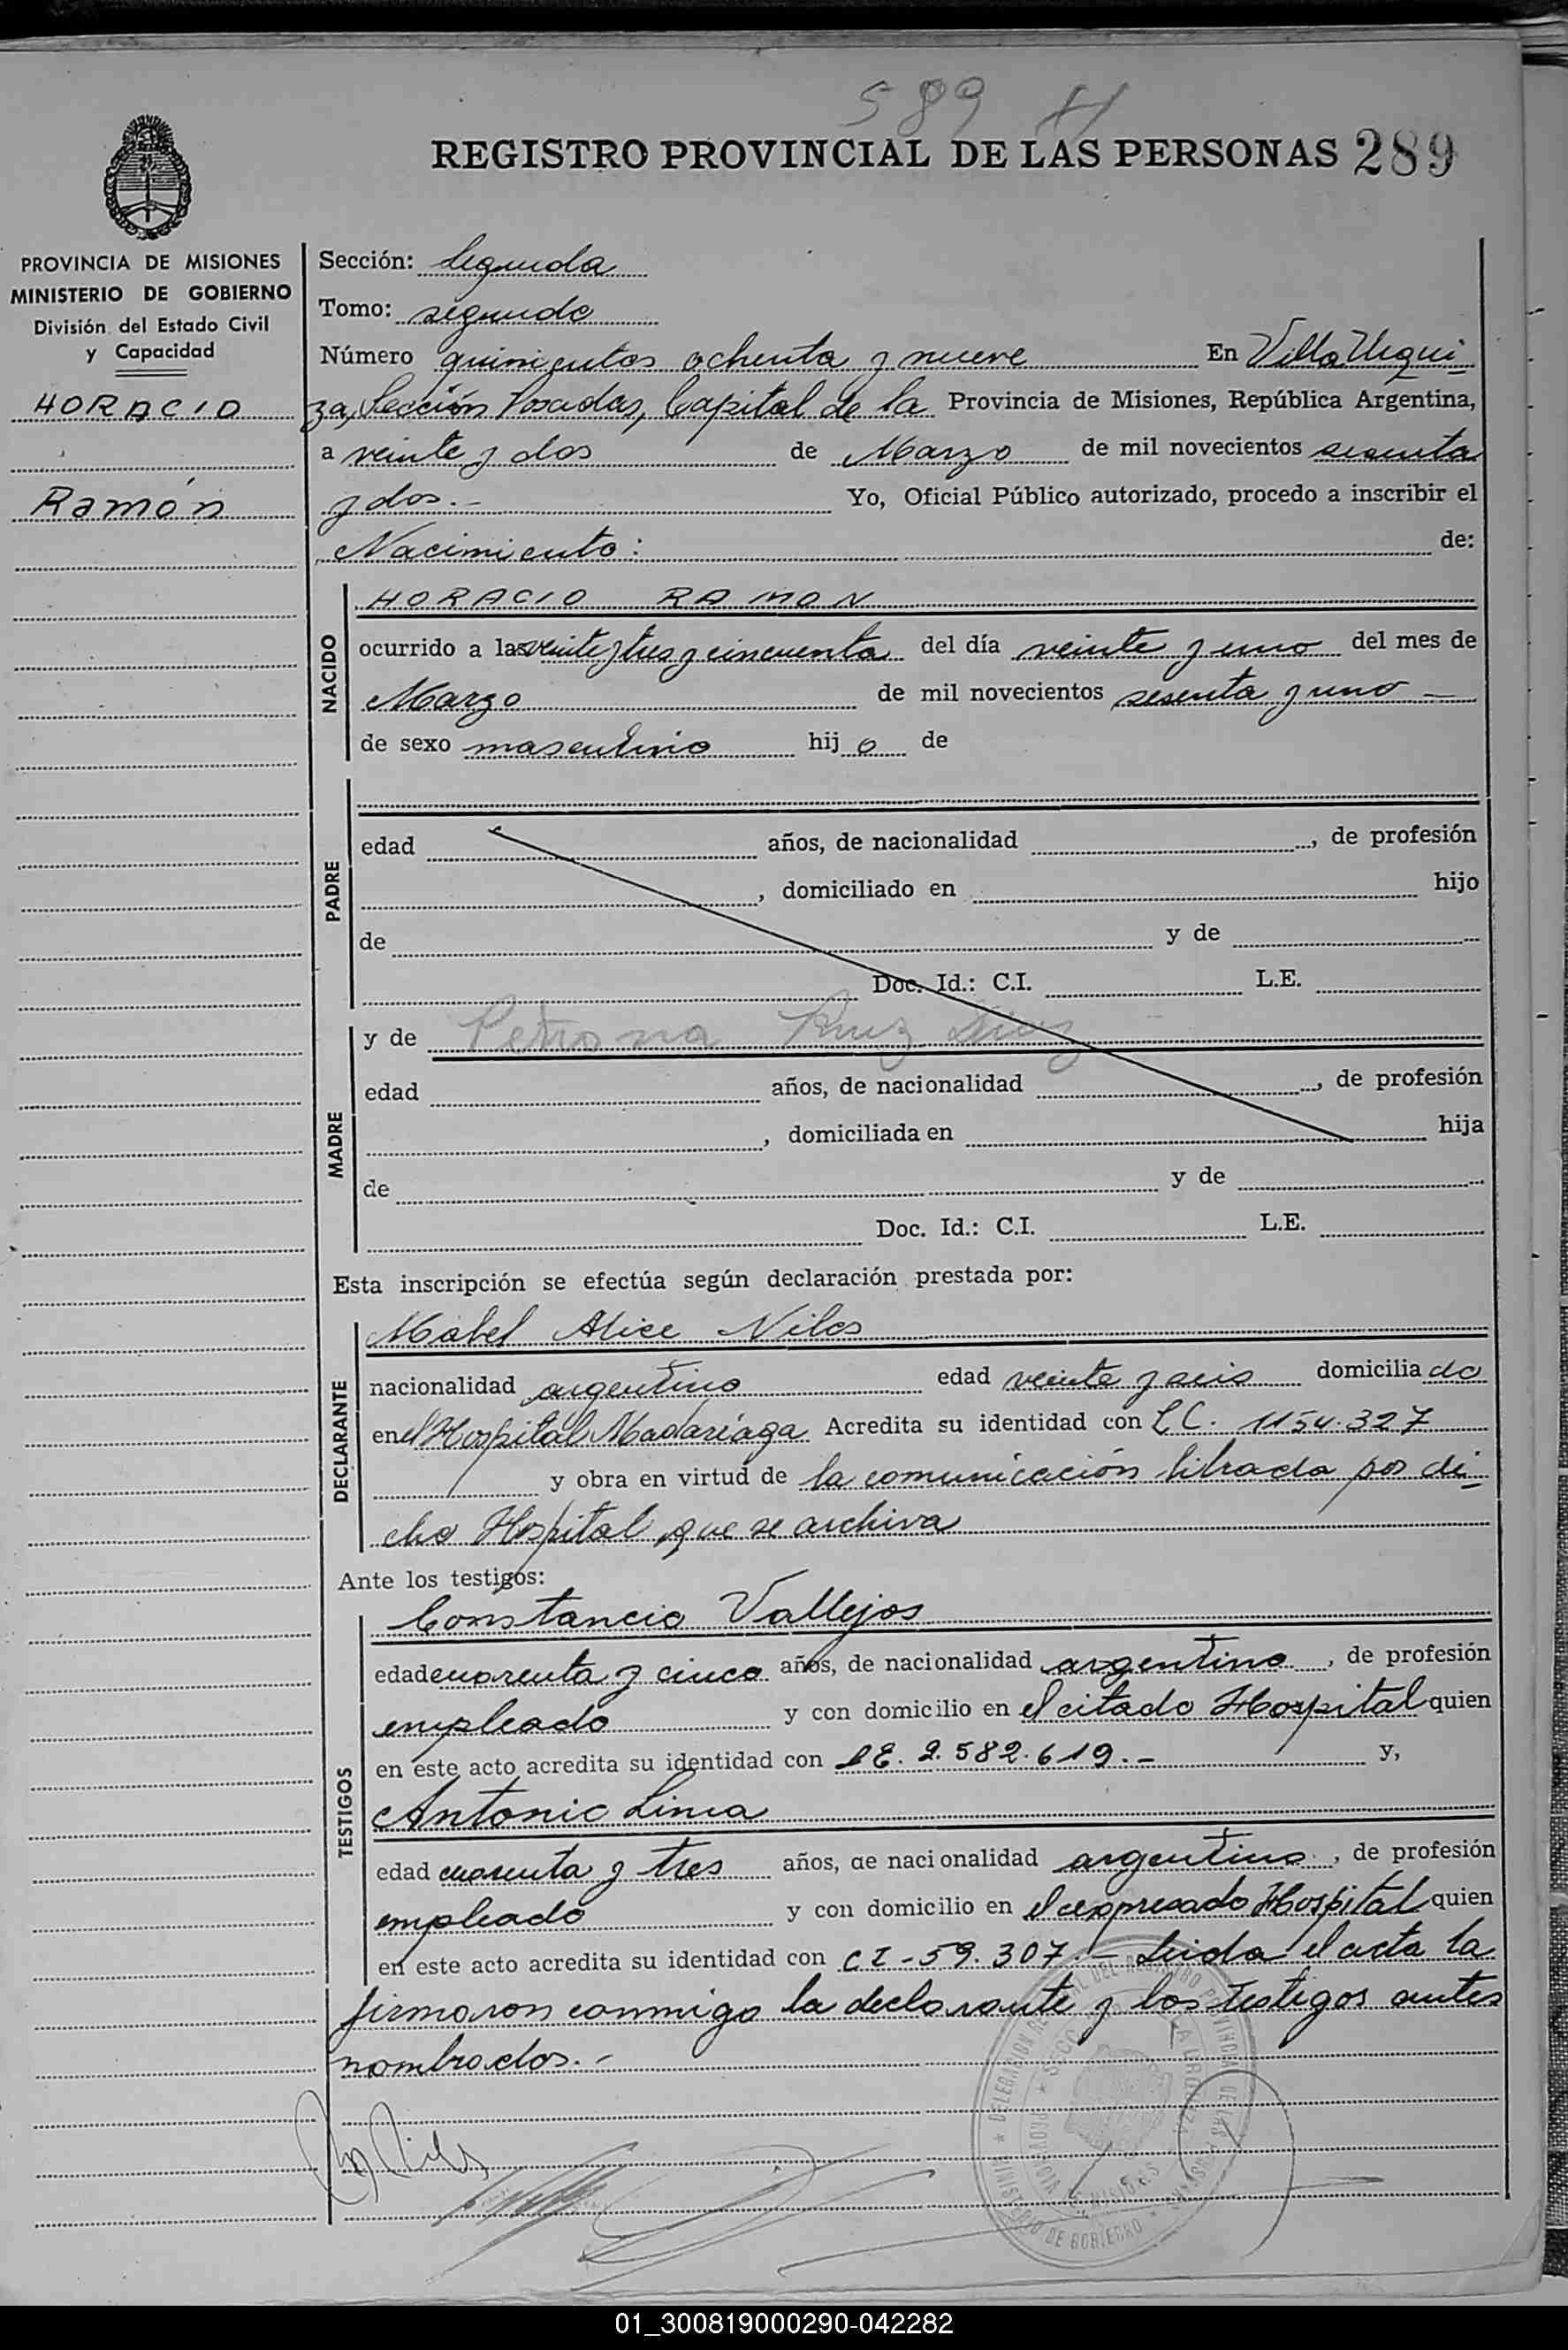 589 H
REGISTRO PROVINCIAL DE LAS PERSONAS 289
PROVINCIA DE MISIONES
MINISTERIO DE GOBIERNO
División del Estado Civil
y Capacidad
HORACIO
Ramón
Sección: Segunda
Tomo: segundo
Número quinientos ochenta y nueve En Villa Urqui-
za, Sección Posadas, Capital de la Provincia de Misiones, República Argentina,
a veinte y dos de Marzo de mil novecientos sesenta
y dos.- Yo, Oficial Público autorizado, procedo a inscribir el
Nacimiento: de:
NACIDO
HORACIO RAMON
ocurrido a las veinte y tres y cincuenta del día veinte y uno del mes de
Marzo de mil novecientos sesenta y uno —
de sexo masculino hijo de
PADRE
edad años, de nacionalidad , de profesión
, domiciliado en hijo
de y de
Doc. Id.: C.I. L.E.
MADRE
y de Petrona Diaz
edad años, de nacionalidad , de profesión
, domiciliada en hija
de y de
Doc. Id.: C.I. L.E.
Esta inscripción se efectúa según declaración prestada por:
DECLARANTE
Mabel Alice Niles
nacionalidad argentina edad veinte y seis domiciliada
en el Hospital Madariaga Acredita su identidad con L.C. 1154.327
y obra en virtud de la comunicación librada por di-
cho Hospital, que se archiva
Ante los testigos:
TESTIGOS
Constancio Vallejos
edad cuarenta y cinco años, de nacionalidad argentino, de profesión
empleado y con domicilio en el citado Hospital quien
en este acto acredita su identidad con LE. 2.582.619.- y,
Antonio Lima
edad cuarenta y tres años, de nacionalidad argentino, de profesión
empleado y con domicilio en el expresado Hospital quien
en este acto acredita su identidad con CI-59.307.- Leida el acta la
firmaron conmigo la declarante y los testigos antes
nombrados.-
01_300819000290-042282